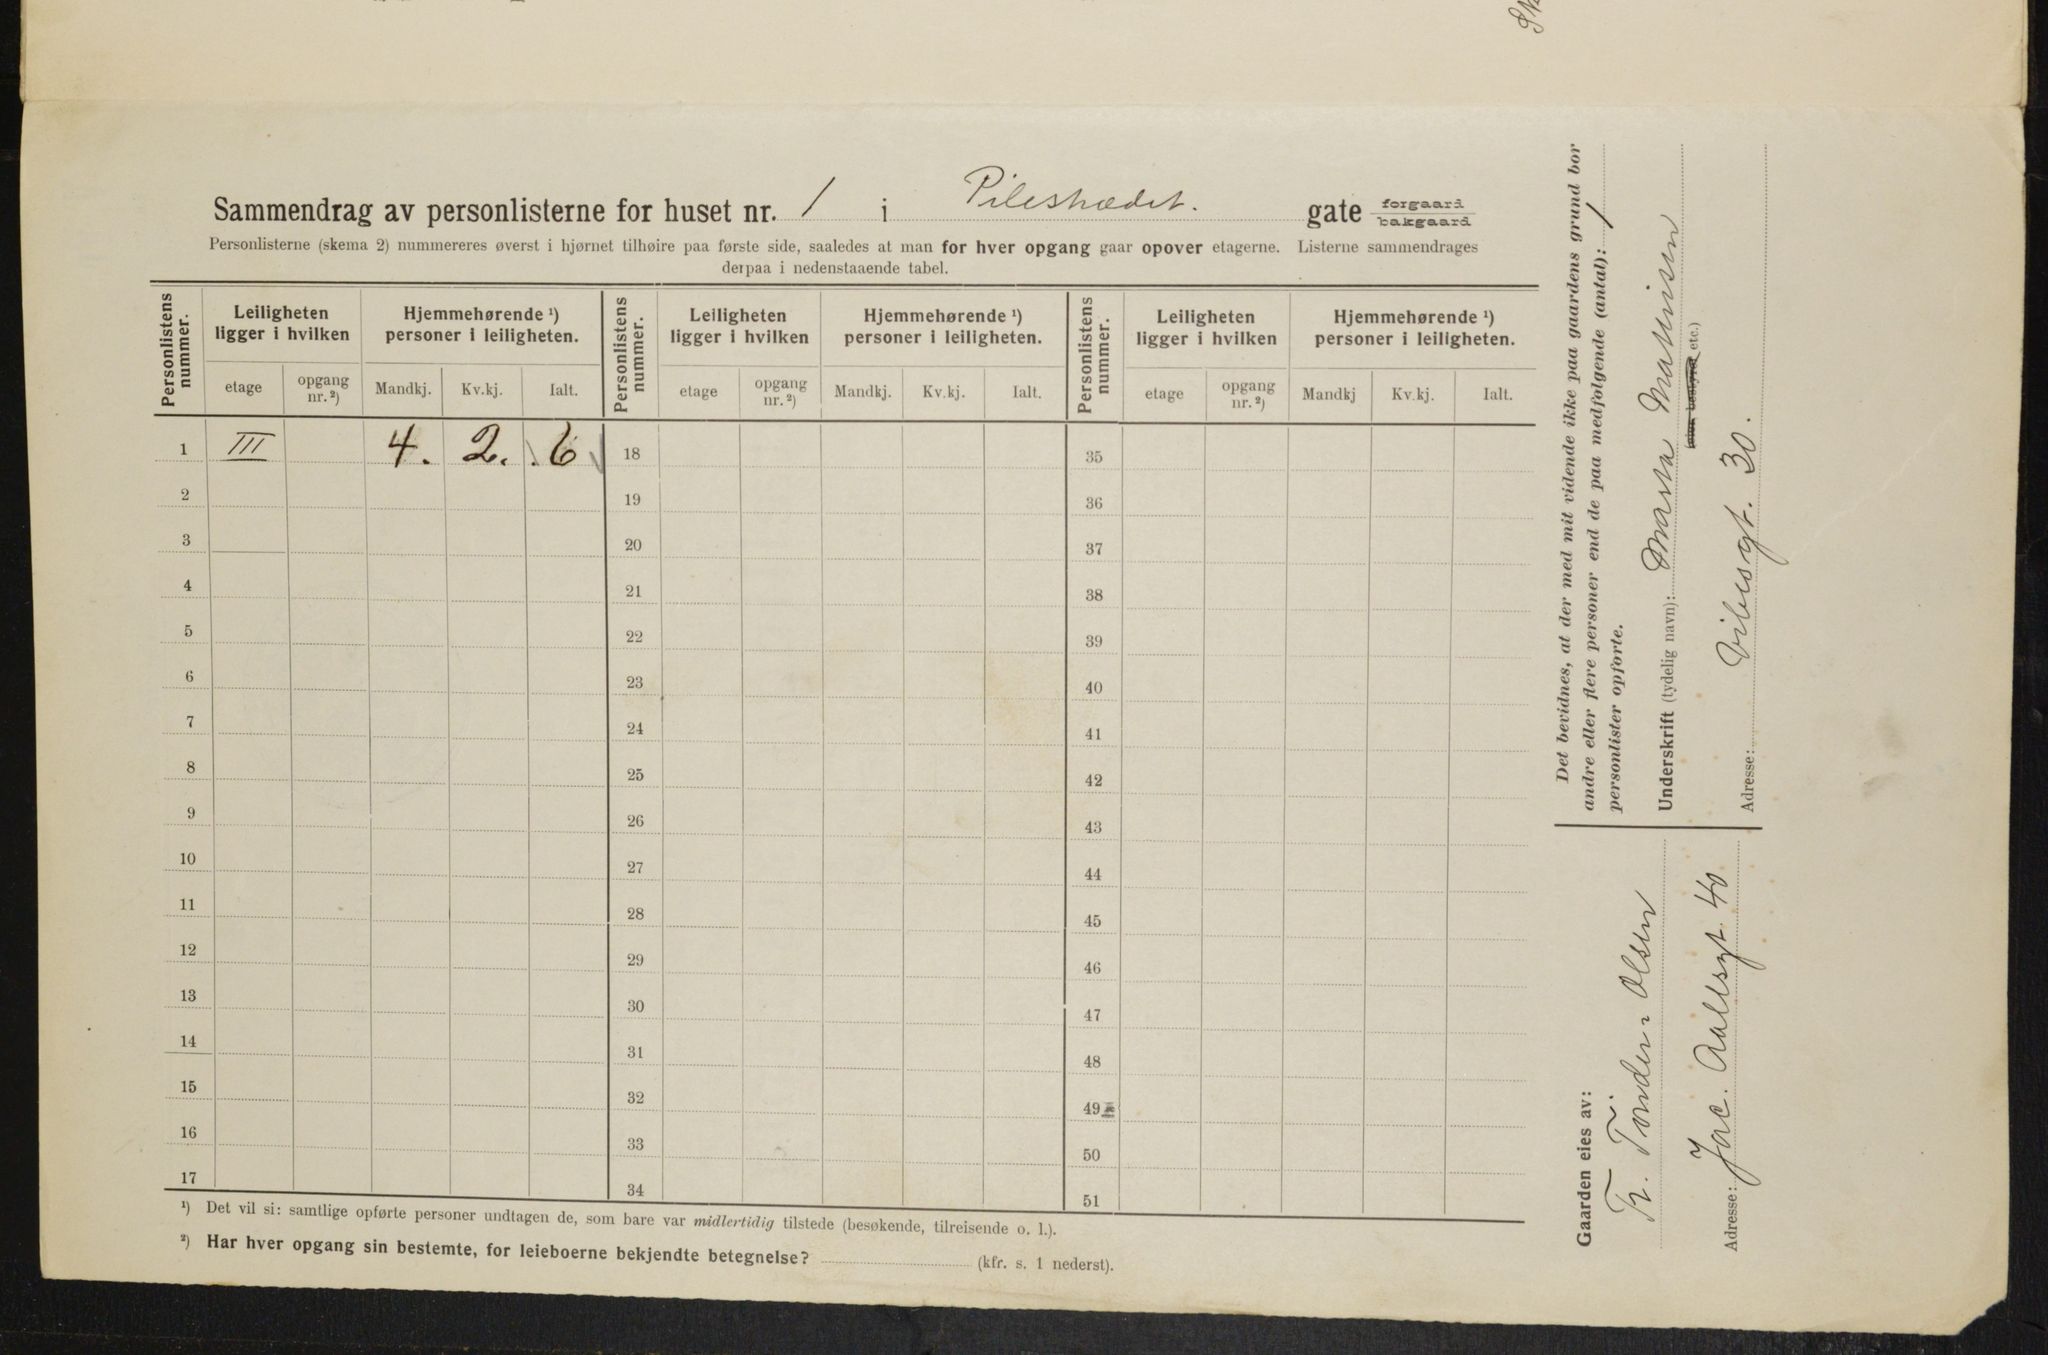 Sammendrag av personlisterne for huset nr. 1 i Pilestrædet. gate forgaard bakgaard
Personlisterne (skema 2) nummereres øverst i hjørnet tilhøire paa første side, saaledes at man for hver opgang gaar opover etagerne. Listerne sammendrages
derpaa i nedenstaaende tabel.
Personlistens nummer. Leiligheten ligger i hvilken Hjemmehørende ¹) personer i leiligheten. Personlistens nummer. Leiligheten ligger i hvilken Hjemmehørende ¹) personer i leiligheten. Personlistens nummer. Leiligheten ligger i hvilken Hjemmehørende ¹) personer i leiligheten.
etage opgang nr. ²) Mandkj. Kv.kj. Ialt. etage opgang nr. ²) Mandkj. Kv.kj. Ialt. etage opgang nr. ²) Mandkj Kv.kj. Ialt.
1 III 4. 2. 6 18 35
2 19 36
3 20 37
4 21 38
5 22 39
6 23 40
7 24 41
8 25 42
9 26 43
10 27 44
11 28 45
12 29 46
13 30 47
14 31 48
15 32 49
16 33 50
17 34 51
¹) Det vil si: samtlige opførte personer undtagen de, som bare var midlertidig tilstede (besøkende, tilreisende o. l.).
²) Har hver opgang sin bestemte, for leieboerne bekjendte betegnelse? (kfr. s. 1 nederst).
Det bevidnes, at der med mit vidende ikke paa gaardens grund bor
andre eller flere personer end de paa medfølgende (antal): 1
personlister opførte.
Underskrift (tydelig navn): Marta Mathisen
etc.)
Adresse: Vibesgt. 30.
Gaarden eies av:
Tønder Olsen
Adresse: Jac. Aallsgt 40